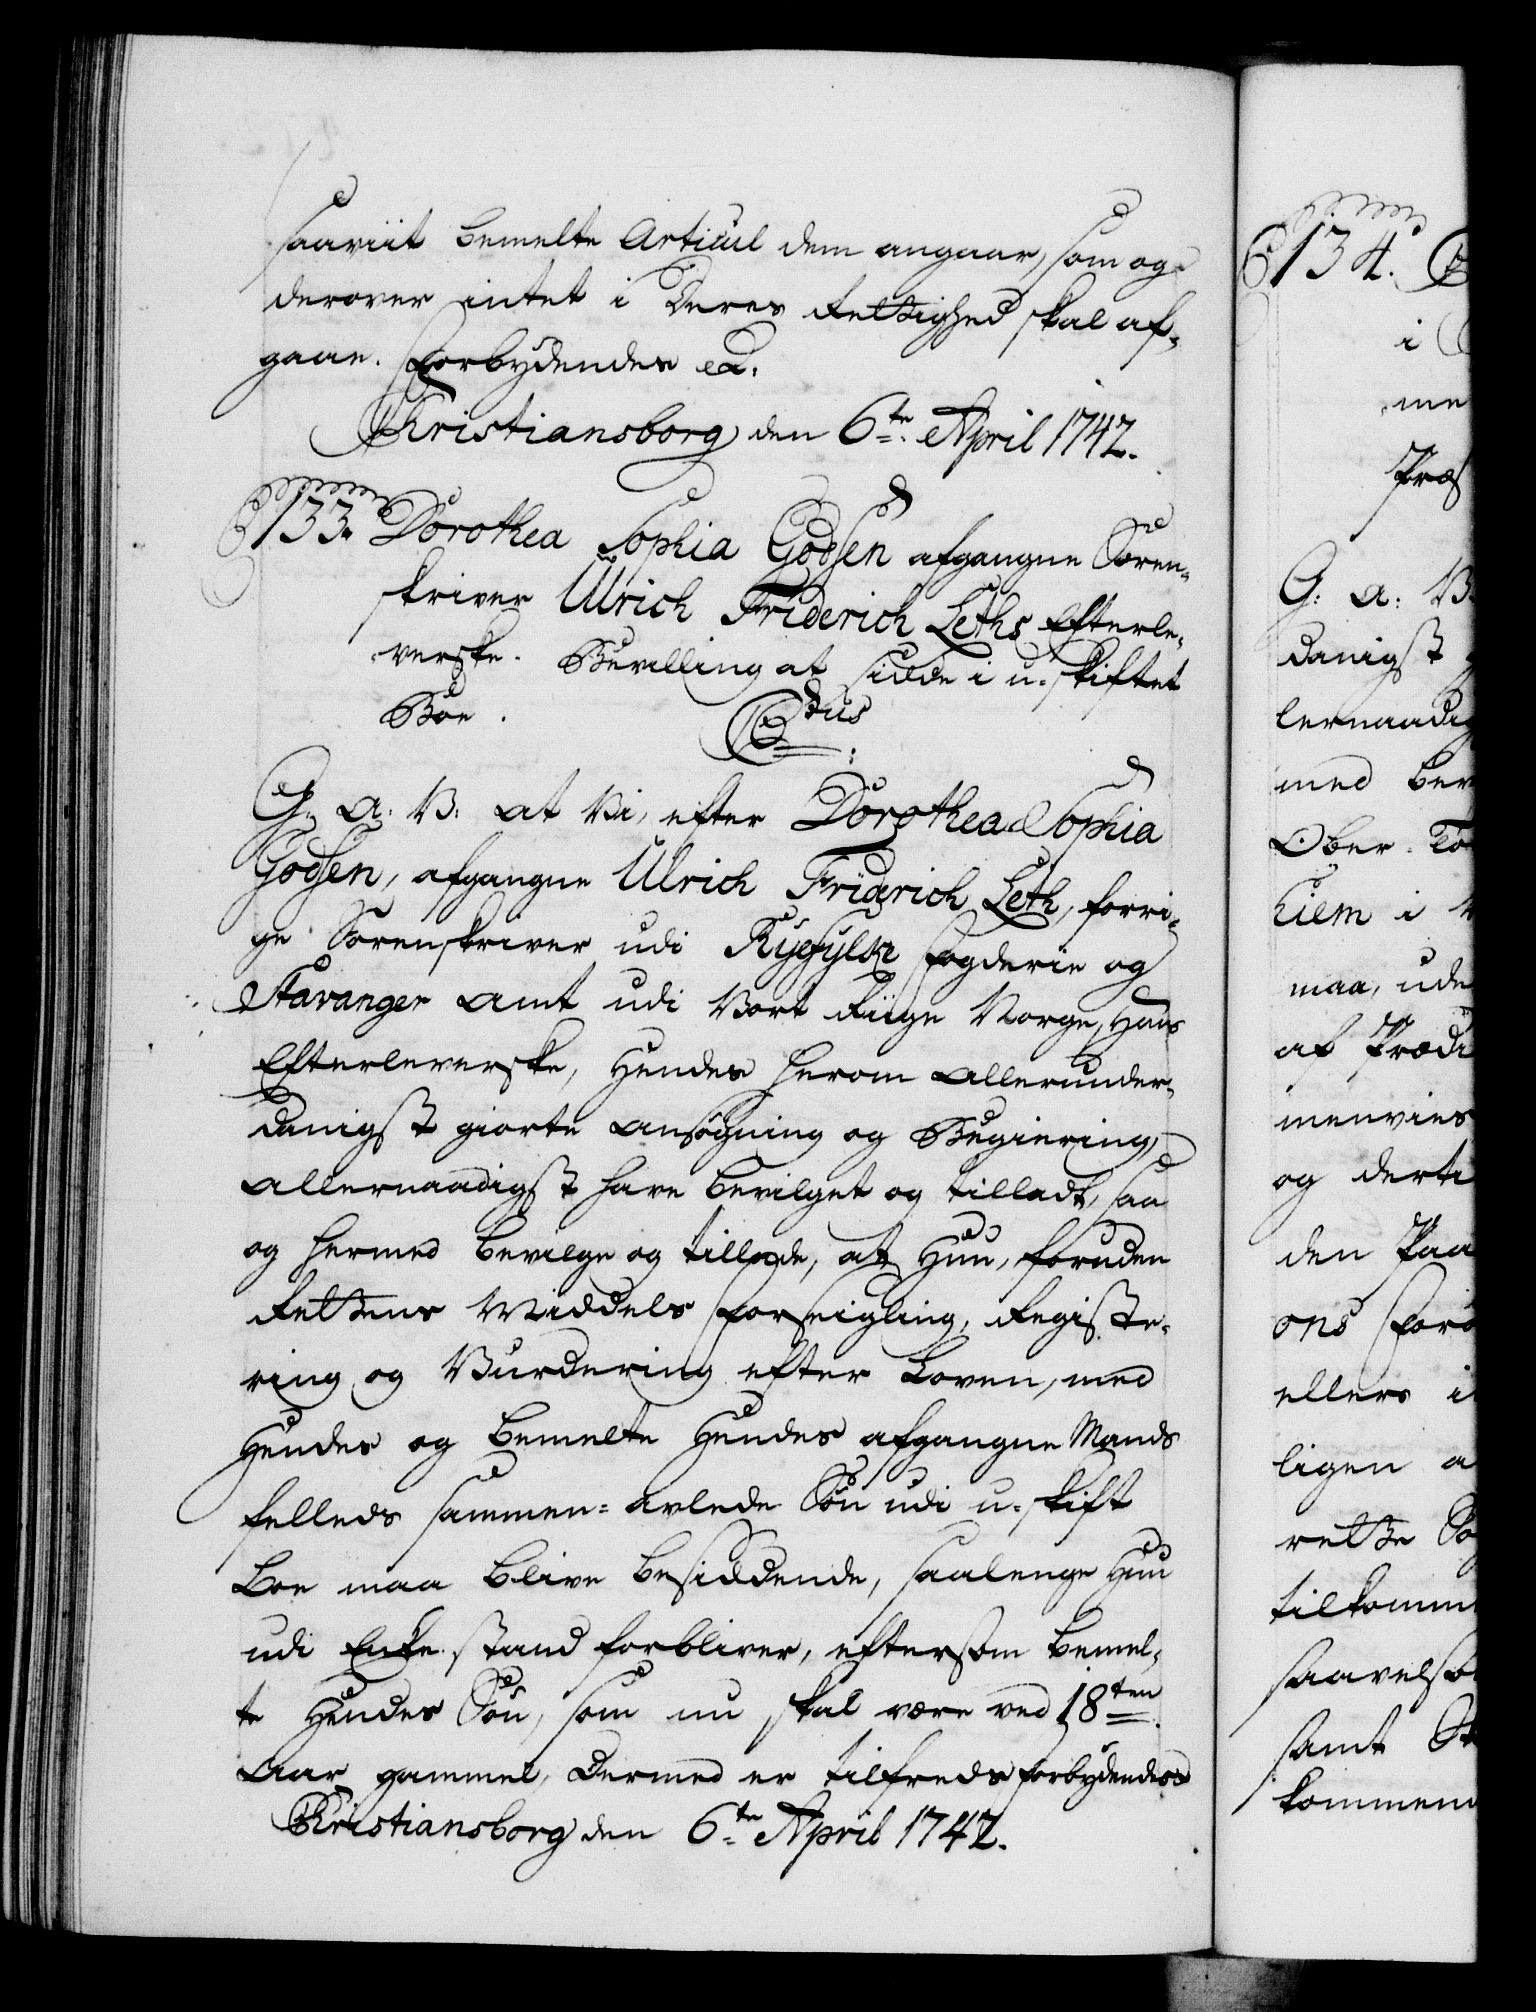 saaviit bemelte Articul dem angaar, som og
derover intet i Deres Rettighed skal af-
gaae. Forbydendes &c.
Christiansborg den 6te April 1742.
133. Dorothea Sophia Godsen afgangne Soren-
skriver Ulrich Friderich Leths Efterle-
verske. Bevilling at sidde i u-skiftet
Boe.
G. a. V. at Vi, efter Dorothea Sophia
Godsen, afgangne Ulrich Friderich Leth, forri-
ge Sorenskriver udi Ryefylke Fogderie og
Stavanger Amt udi Vort Riige Norge, Hans
Efterleverske, Hendes herom allerunder-
danigst giorte Ansøgning og Begiering,
allernaadigst have bevilget og tilladt, saa
og hermed bevilge og tillade, at Hun, foruden
Rettens Middels Forseigling, Registe-
ring og Vurdering efter Loven, med
Hendes og bemelte Hendes afgangne Mands
felleds sammen-avlede Søn udi u-skift
Boe maa blive besiddende, saalenge Hun
udi Enke-stand forbliver, eftersom bemel-
te Hendes Søn, som nu skal være ved 18ten
Aar gammel, dermed er tilfreds forbydendes
Christiansborg den 6te April 1742.
134.
i
me
Præs
G: a: V:
danigst
lernaadig
med bev
Ober-
hiem i
maa, ude
af Præd
menvies
og derti
den Paa
ons For
ellers i
ligen a
rette So
tilkomm
saavels
samt
kommen